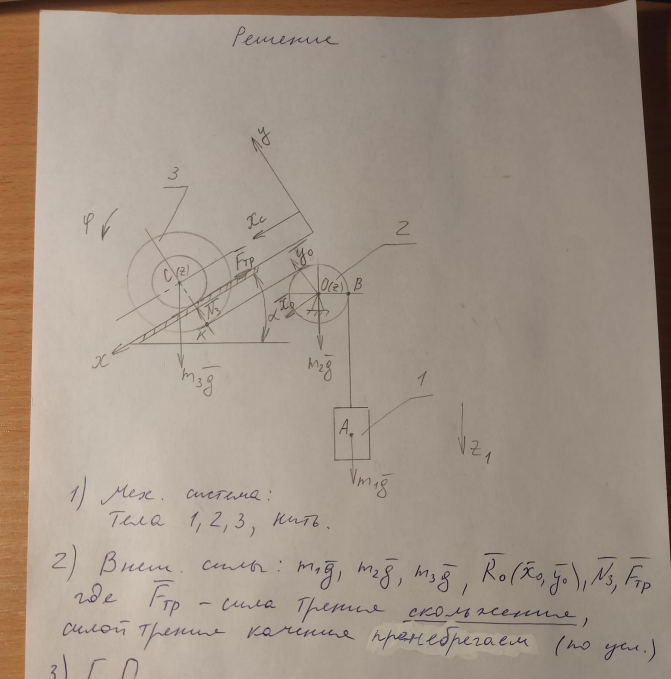 Решение
y
3
φ
xc
2
Fтр
y₀
C(z)
O(z)
B
N₃
x₀
α
K
x
m₃g̅
m₂g̅
1
A
z₁
m₁g̅
1) Мех. система:
Тела 1, 2, 3, нить.
2) Внеш. силы: m₁g̅, m₂g̅, m₃g̅, R̅₀(x̅₀, y̅₀), N̅₃, F̅тр
где F̅тр – сила трения скольжения,
силой трения качения пренебрегаем (по усл.)
3)